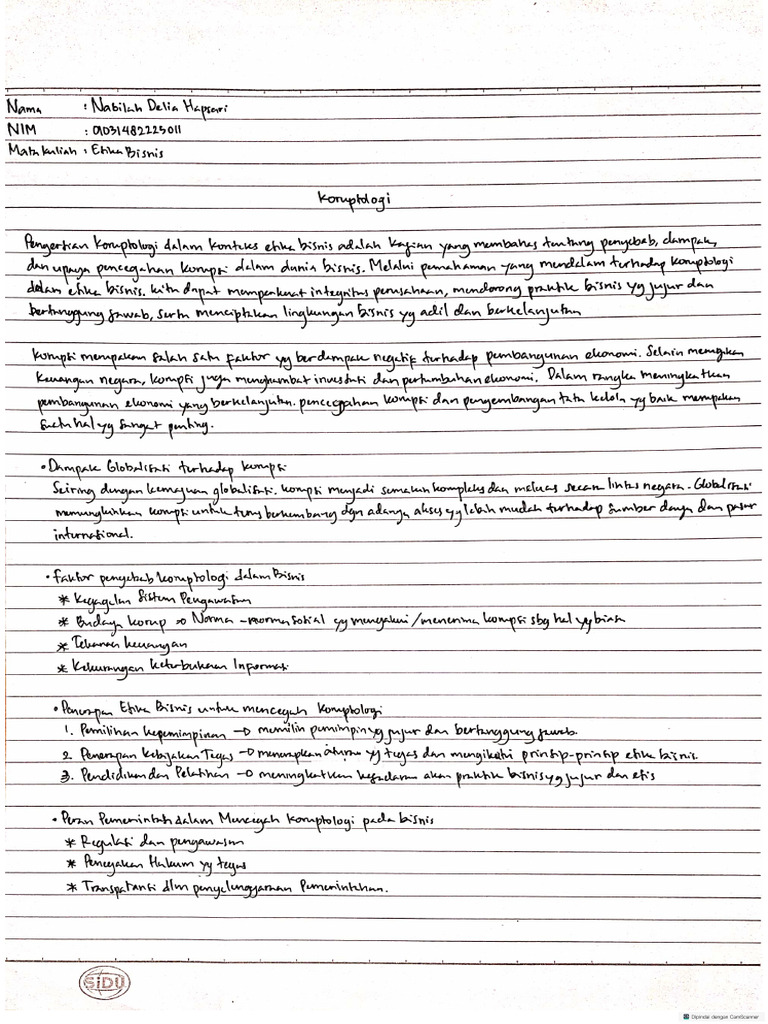 Nama : Nabilah Delia Hapsari
NIM : 09031482225011
Mata kuliah : Etika Bisnis
Koruptologi
Pengertian Koruptologi dalam konteks etika bisnis adalah kajian yang membahas tentang penyebab, dampak,
dan upaya pencegahan korupsi dalam dunia bisnis. Melalui pemahaman yang mendalam terhadap koruptologi
dalam etika bisnis. kita dapat memperkuat integritas perusahaan, mendorong praktik bisnis yg jujur dan
bertanggung jawab, serta menciptakan lingkungan bisnis yg adil dan berkelanjutan
korupsi merupakan salah satu faktor yg berdampak negatif terhadap pembangunan ekonomi. Selain merugikan
keuangan negara, korupsi juga menghambat investasi dan pertumbuhan ekonomi. Dalam rangka meningkatkan
pembangunan ekonomi yang berkelanjutan. pencegahan korupsi dan pengembangan tata kelola yg baik merupakan
suatu hal yg sangat penting.
• Dampak Globalisasi terhadap korupsi
Seiring dengan kemajuan globalisasi. korupsi menjadi semakin kompleks dan meluas secara lintas negara. Globalisasi
memungkinkan korupsi untuk terus berkembang dgn adanya akses yg lebih mudah terhadap sumber daya dan pasar
international.
• Faktor penyebab koruptologi dalam Bisnis
* Kegagalan Sistem Pengawasan
* Budaya korup => Norma-norma sosial yg mengakui/menerima korupsi sbg hal yg biasa
* Tekanan keuangan
* Kekurangan keterbukaan Informasi
• Penerapan Etika Bisnis untuk mencegah Koruptologi
1. Pemilihan kepemimpinan → memilih pemimpin yg jujur dan bertanggung jawab.
2. Penerapan Kebijakan Tegas → menerapkan aturan yg tegas dan mengikuti prinsip-prinsip etika bisnis.
3. Pendidikan dan Pelatihan → meningkatkan kesadaran akan praktik bisnis yg jujur dan etis
• Peran Pemerintah dalam Mencegah Koruptologi pada bisnis
* Regulasi dan pengawasan
* Penegakan Hukum yg tegas
* Transparansi dlm penyelenggaraan Pemerintahan.
SiDU
Dipindai dengan CamScanner